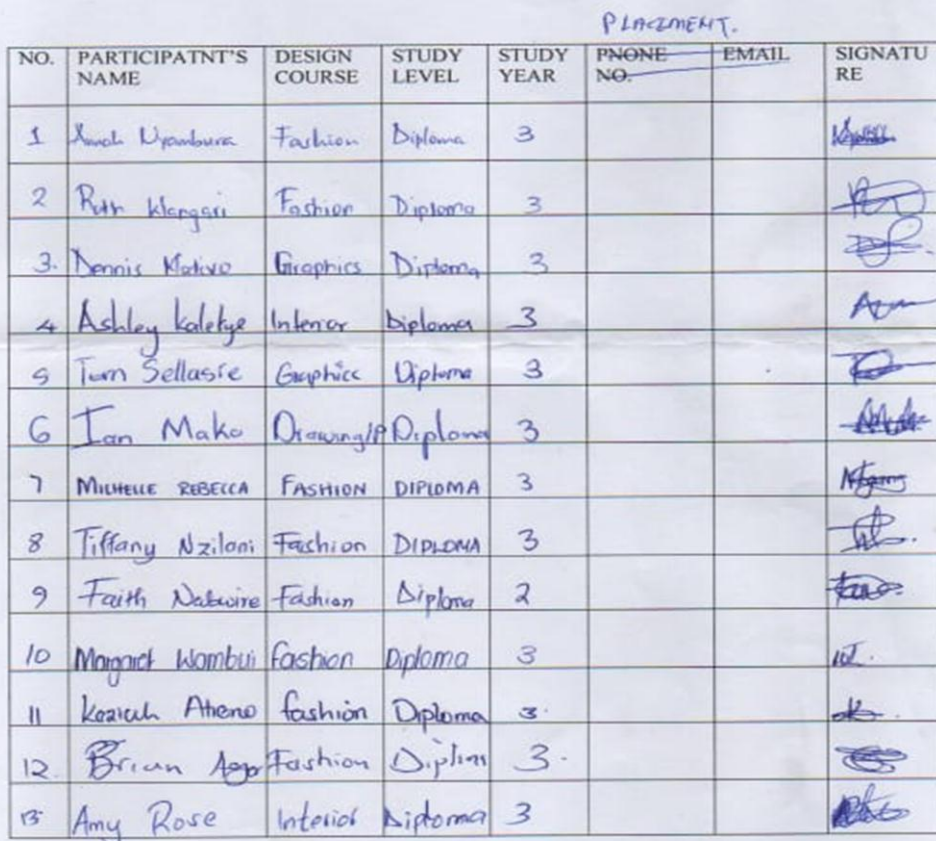 PLACEMENT.
NO. PARTICIPATNT'S NAME DESIGN COURSE STUDY LEVEL STUDY YEAR PNONE NO. EMAIL SIGNATURE
1 Nyambura Fashion Diploma 3
2 Ruth Wangari Fashion Diploma 3
3. Dennis Mativo Graphics Diploma 3
4 Ashley Kaletye Interior Diploma 3
5 Tum Sellasie Graphics Diploma 3
6 Ian Mako Drawing/P Diploma 3
7 MICHELLE REBECCA FASHION DIPLOMA 3
8 Tiffany Nzilani Fashion DIPLOMA 3
9 Faith Nabwire Fashion Diploma 2
10 Margaret Wambui fashion Diploma 3
11 Keziah Atieno fashion Diploma 3.
12. Brian Fashion 3.
13 Amy Rose Interior Diploma 3